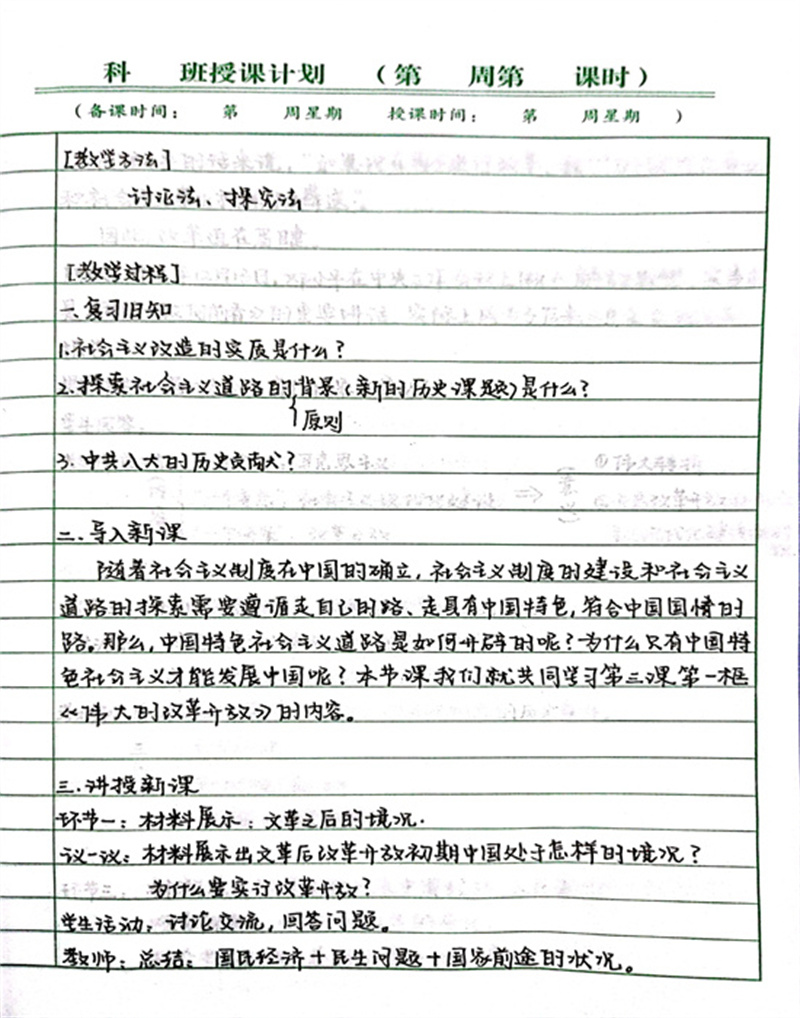 科 班授课计划 （第 周第 课时）
（备课时间： 第 周星期 授课时间： 第 周星期 ）
[教学方法]
讨论法、探究法
[教学过程]
一.复习旧知
1.社会主义改造的实质是什么？
2.探索社会主义道路的背景(新的历史课题)是什么？
原则
3.中共八大的历史贡献？
二.导入新课
随着社会主义制度在中国的确立，社会主义制度的建设和社会主义
道路的探索需要遵循走自己的路、走具有中国特色，符合中国国情的
路。那么，中国特色社会主义道路是如何开辟的呢？为什么只有中国特
色社会主义才能发展中国呢？本节课我们就共同学习第三课第一框
《伟大的改革开放》的内容。
三.讲授新课
环节一：材料展示：文革之后的境况.
议一议：材料展示出文革后改革开放初期中国处于怎样的境况？
为什么要实讨改革开放？
学生活动：讨论交流，回答问题。
教师：总结：国民经济+民生问题+国家前途的状况。